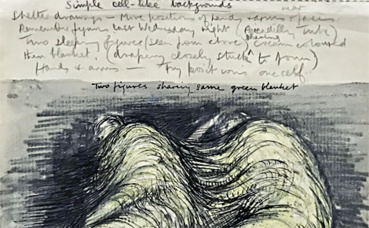 Simple cell-like backgrounds
Shelter drawings – More positions of hands & arms & faces
Remember figures last Wednesday night (Piccadilly Tube)
Two sleeping figures (seen from above) sharing cream coloured
thin blanket (drapery closely stuck to form)
Hands & arms — Try positions oneself.
Two figures sharing same green blanket